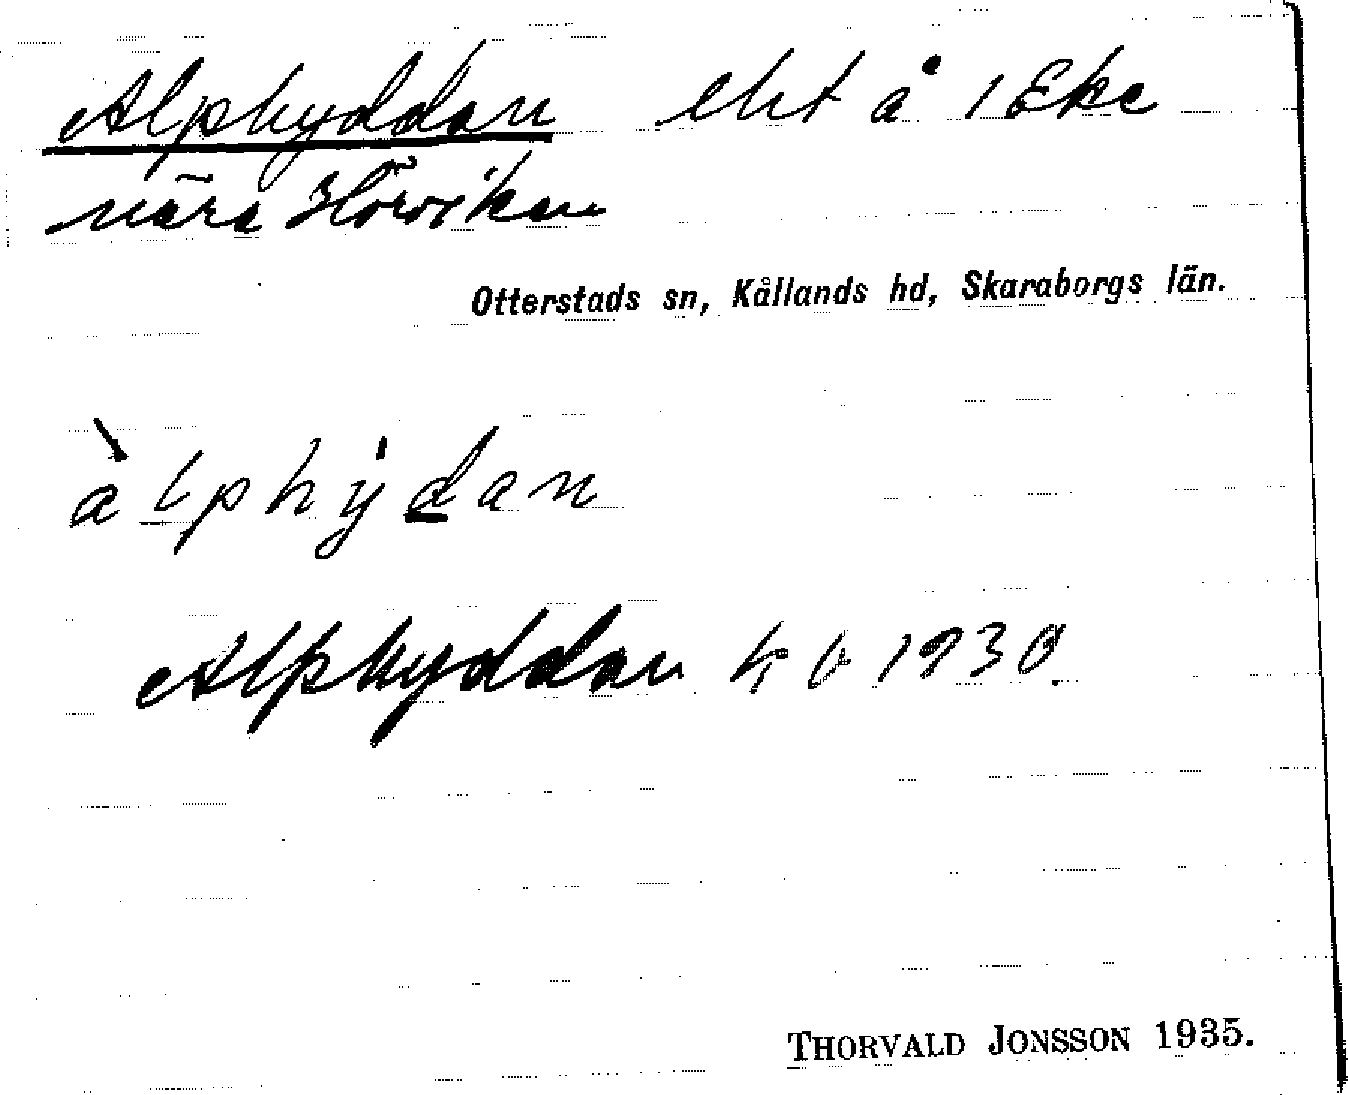 Alphyddan lht å 1 Eke
nära Hörviken
Otterstads sn, Kållands hd, Skaraborgs län.
àlphy̍dan
Alphyddan kb 1930.
THORVALD JONSSON 1935.